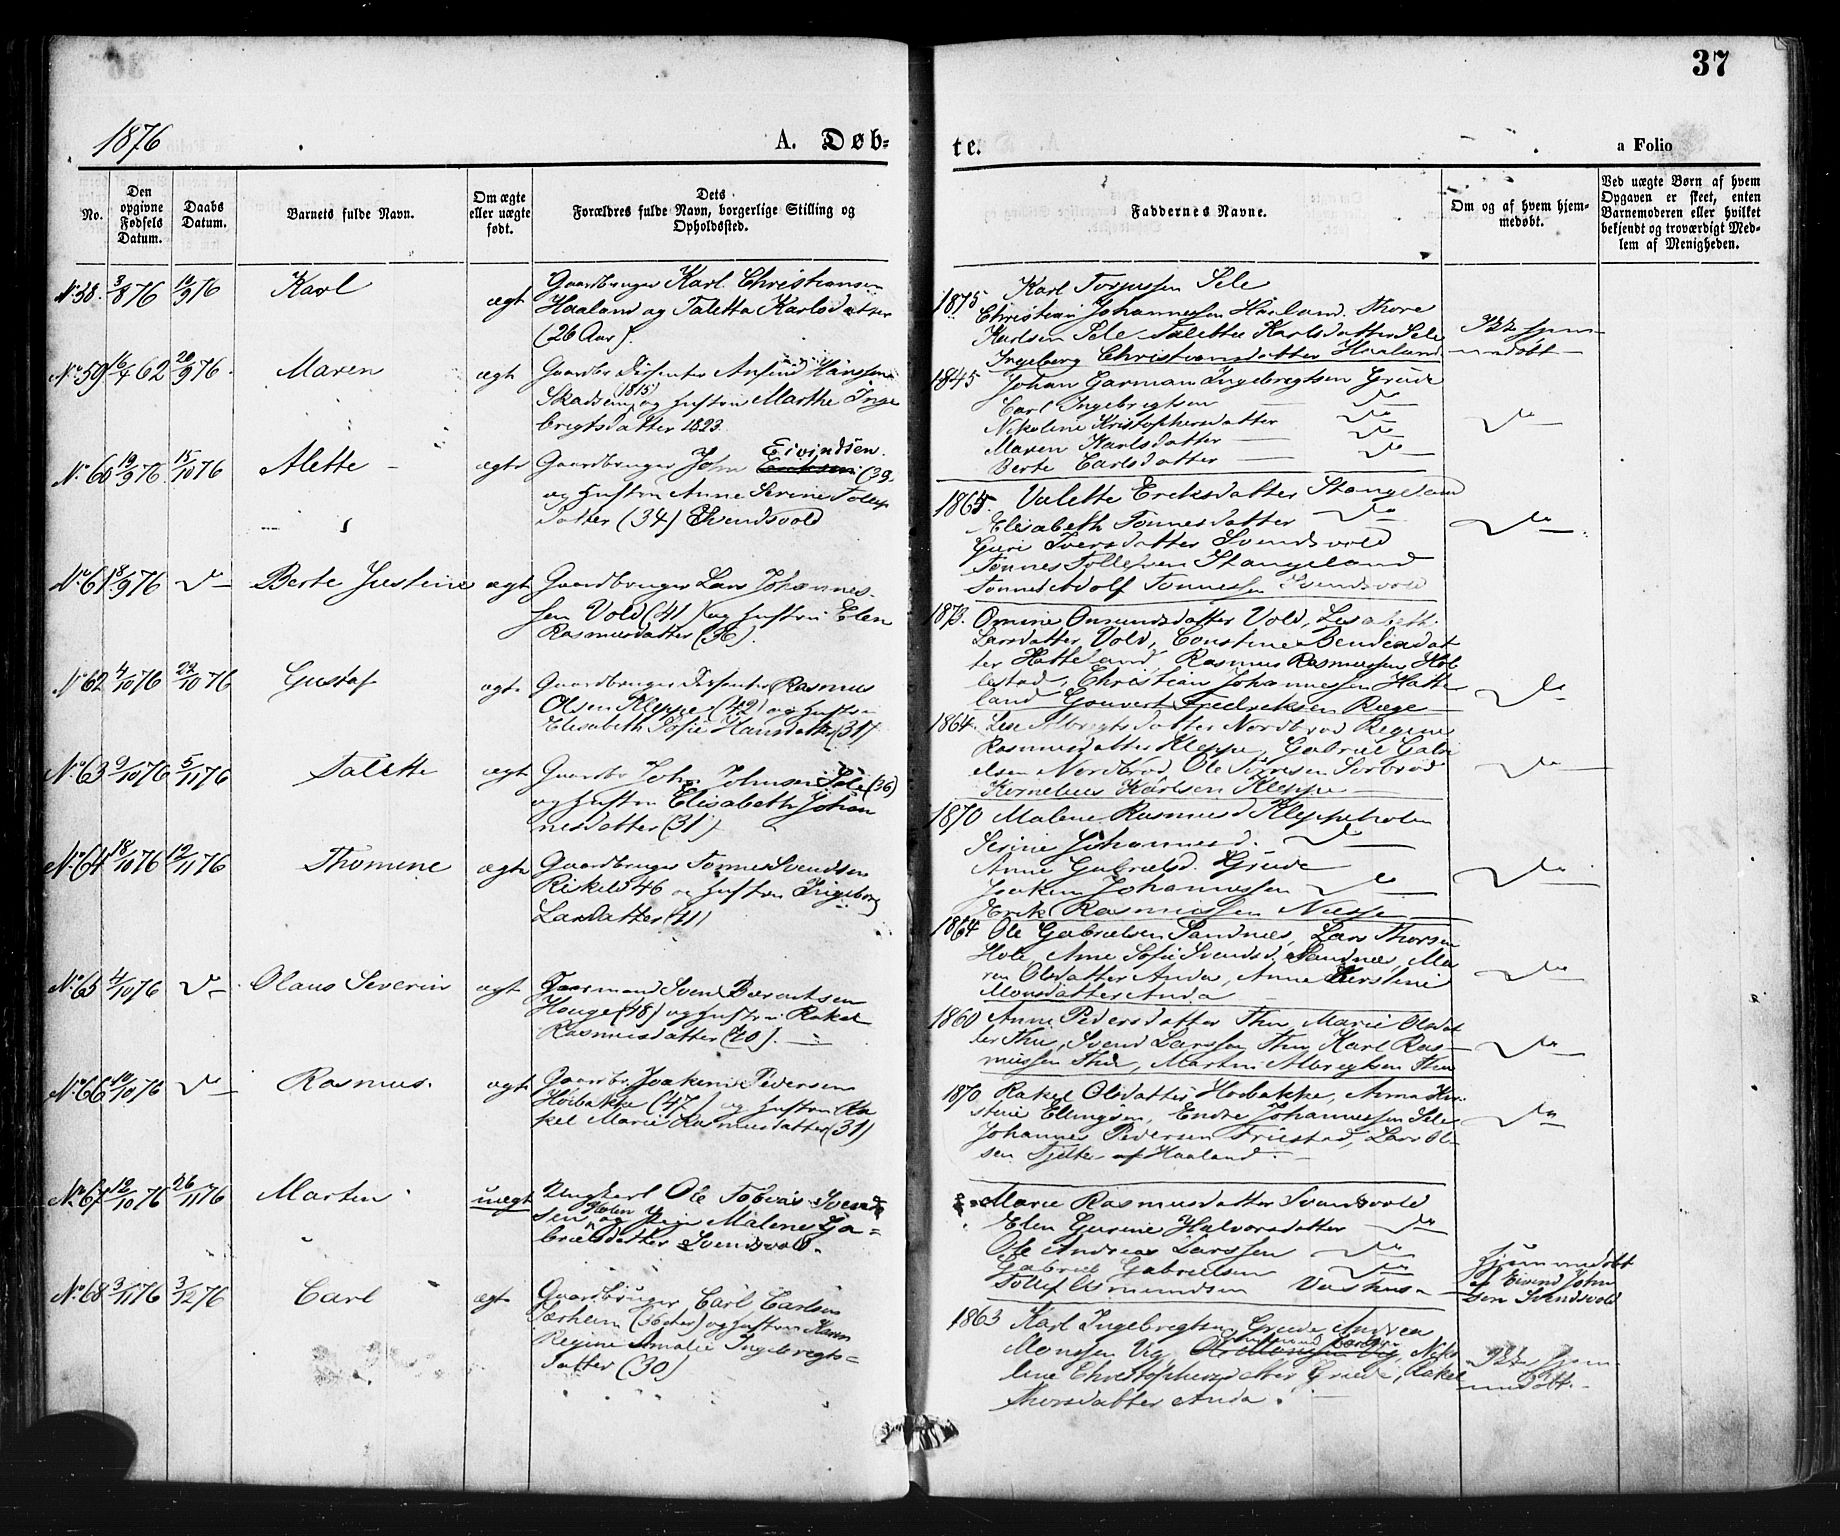 37
1876
A. Døb-
te.
a Folio
No.
Den opgivne Fødsels Datum.
Daabs Datum.
Barnets fulde Navn.
Om ægte eller uægte født.
Dets Forældres fulde Navn, borgerlige Stilling og Opholdssted.
Faddernes Navne.
Om og af hvem hjemmedøbt.
Ved uægte Børn af hvem Opgaven er skeet, enten Barnemoderen eller hvilket bekjendt og troværdigt Medlem af Menigheden.
No 58. 3/8 76 10/9 76 Karl ægt Gaardbruger Karl Christiansen
Haaland og Taletta Karlsdatter
(26 Aar).
1875 Karl Torjussen Sele
Christian Johannessen Haaland. Thore
Karlsen Sele Talette Karlsdatter Sele
Ingeborg Christiansdatter Haaland
Ikke hjemmedøbt
No 59 16/4 62 20/9 76. Maren ægte Gaardbr. Dissenter Hanssen
Skadsem (1815) og Hustru Marthe Inge
brigtsdatter 1823.
1845 Johan Garman Ingebregtsen Grude
Carl Ingebregtsen do
Nikoline Kristophersdatter do
Maren Karlsdatter do
Berte Carlsdatter do
do
No 60 10/9 76 15/10 76 Alette ægte Gaardbruger John Eivindsen (39
og Hustru Anne Serine Tollefs
datter (34) Svendsvold
1865. Valette Eriksdatter Stangeland
Elisabeth Tønnesdatter do
Guri Iversdatter Svendsvold
Tønnes Tollefsen Stangeland
Tønnes Adolf Tønnessen Svendsvold
do
No 61 18/9 76 do Berte Justine ægte Gaardbruger Lars Johannes-
sen Vold (41) og Hustru Elen
Rasmusdatter (36).
1873. Omine Omundsdatter Vold, Lisabeth
Larsdatter Vold, Constine Bendixdat-
ter Hatteland, Rasmus Rasmussen Hol
lestad, Christian Johannessen Hatte
land Gouvert Fredriksen Rege
do
No 62 4/10 76 22/10 76 Gustaf ægte Gaardbruger Dissenter Rasmus
Olsen Kleppe (42) og Hustru
Elisabeth Sofie Hansdatter (31)
1864. Lise Albregtsdatter Nordbrød Regine
Rasmusdatter Kleppe, Gabriel Gabri
elsen Nordbrød Ole Sørbrød
Kornelius Karlsen Kleppe
do
No 63 9/10 76 5/11 76 Talette ægt Gaardbr John Johnsen Sele (36)
og Hustru Elisabeth Johan
nesdatter (31)
1870 Malene Rasmusd Kleppeholen
Serine Johannesd. do
Anne Gabrielsd. Grude
Joakim Johannessen do
Erik Rasmussen Nesse
do
No 64 18/10 76 12/11 76 Thomine ægte Gaardbruger Tønnes Svendsen
46 og Hustru Ingeborg
Larsdatter (41)
1864 Ole Gabrielsen Sandnes, Lars Thorsen
Hole, Ane Sofie Svendsd. Sandnes, Ma
ren Olsdatter Anda, Anne Kirstine
Monsdatter Anda
do
No 65 4/10 76 do Olaus Severin ægt Gaarmand Svend Berentsen
Houge (48) og Hustru Rakel
Rasmusdatter (40).
1860 Anne Pedersdatter Thu Marie Olsdat
ter Thu, Svend Larssen Thu Karl Ras-
mussen Thu, Martin Albregtsen Thu
do
No 66 10/10 76 do Rasmus. ægt Gaardbr. Joakim Pedersen
Høibakke (47) og Hustru Ra
kel Marie Rasmusdatter (31)
1870 Rakel Olsdatter Høibakke, Anna Kir-
stine Elingsen, Endre Johannessen Sele
Johannes Pedersen Friestad, Lars Ol-
sen Tjelta af Haaland.
do
No 67 12/10 76 26/11 76 Martin uægt Ungkarl Ole Tobias Svend
sen Holen og Pige Malene Ga-
brielsdatter Svendsvold.
Marie Rasmusdatter Svendsvold
Elen Gurine Halvorsdatter do
Ole Andreas Larssen do
Gabriel Gabrielsen do
Tollef Osmundsen
hjemmedøbt
af Eivind John
sen Svendsvold
No 68 3/11 76 3/12 76 Carl ægte Gaardbruger Carl Carlsen
Særheim (36 Aar) og Hustru Karen
Regine Amalie Ingebregts-
datter (30)
1863 Karl Ingebregtsen Grude Andrea
Monssen Vig Niko
line Christophersdatter Grude, Rakel
Thorsdatter Anda.
Ikke hjem-
medøbt.